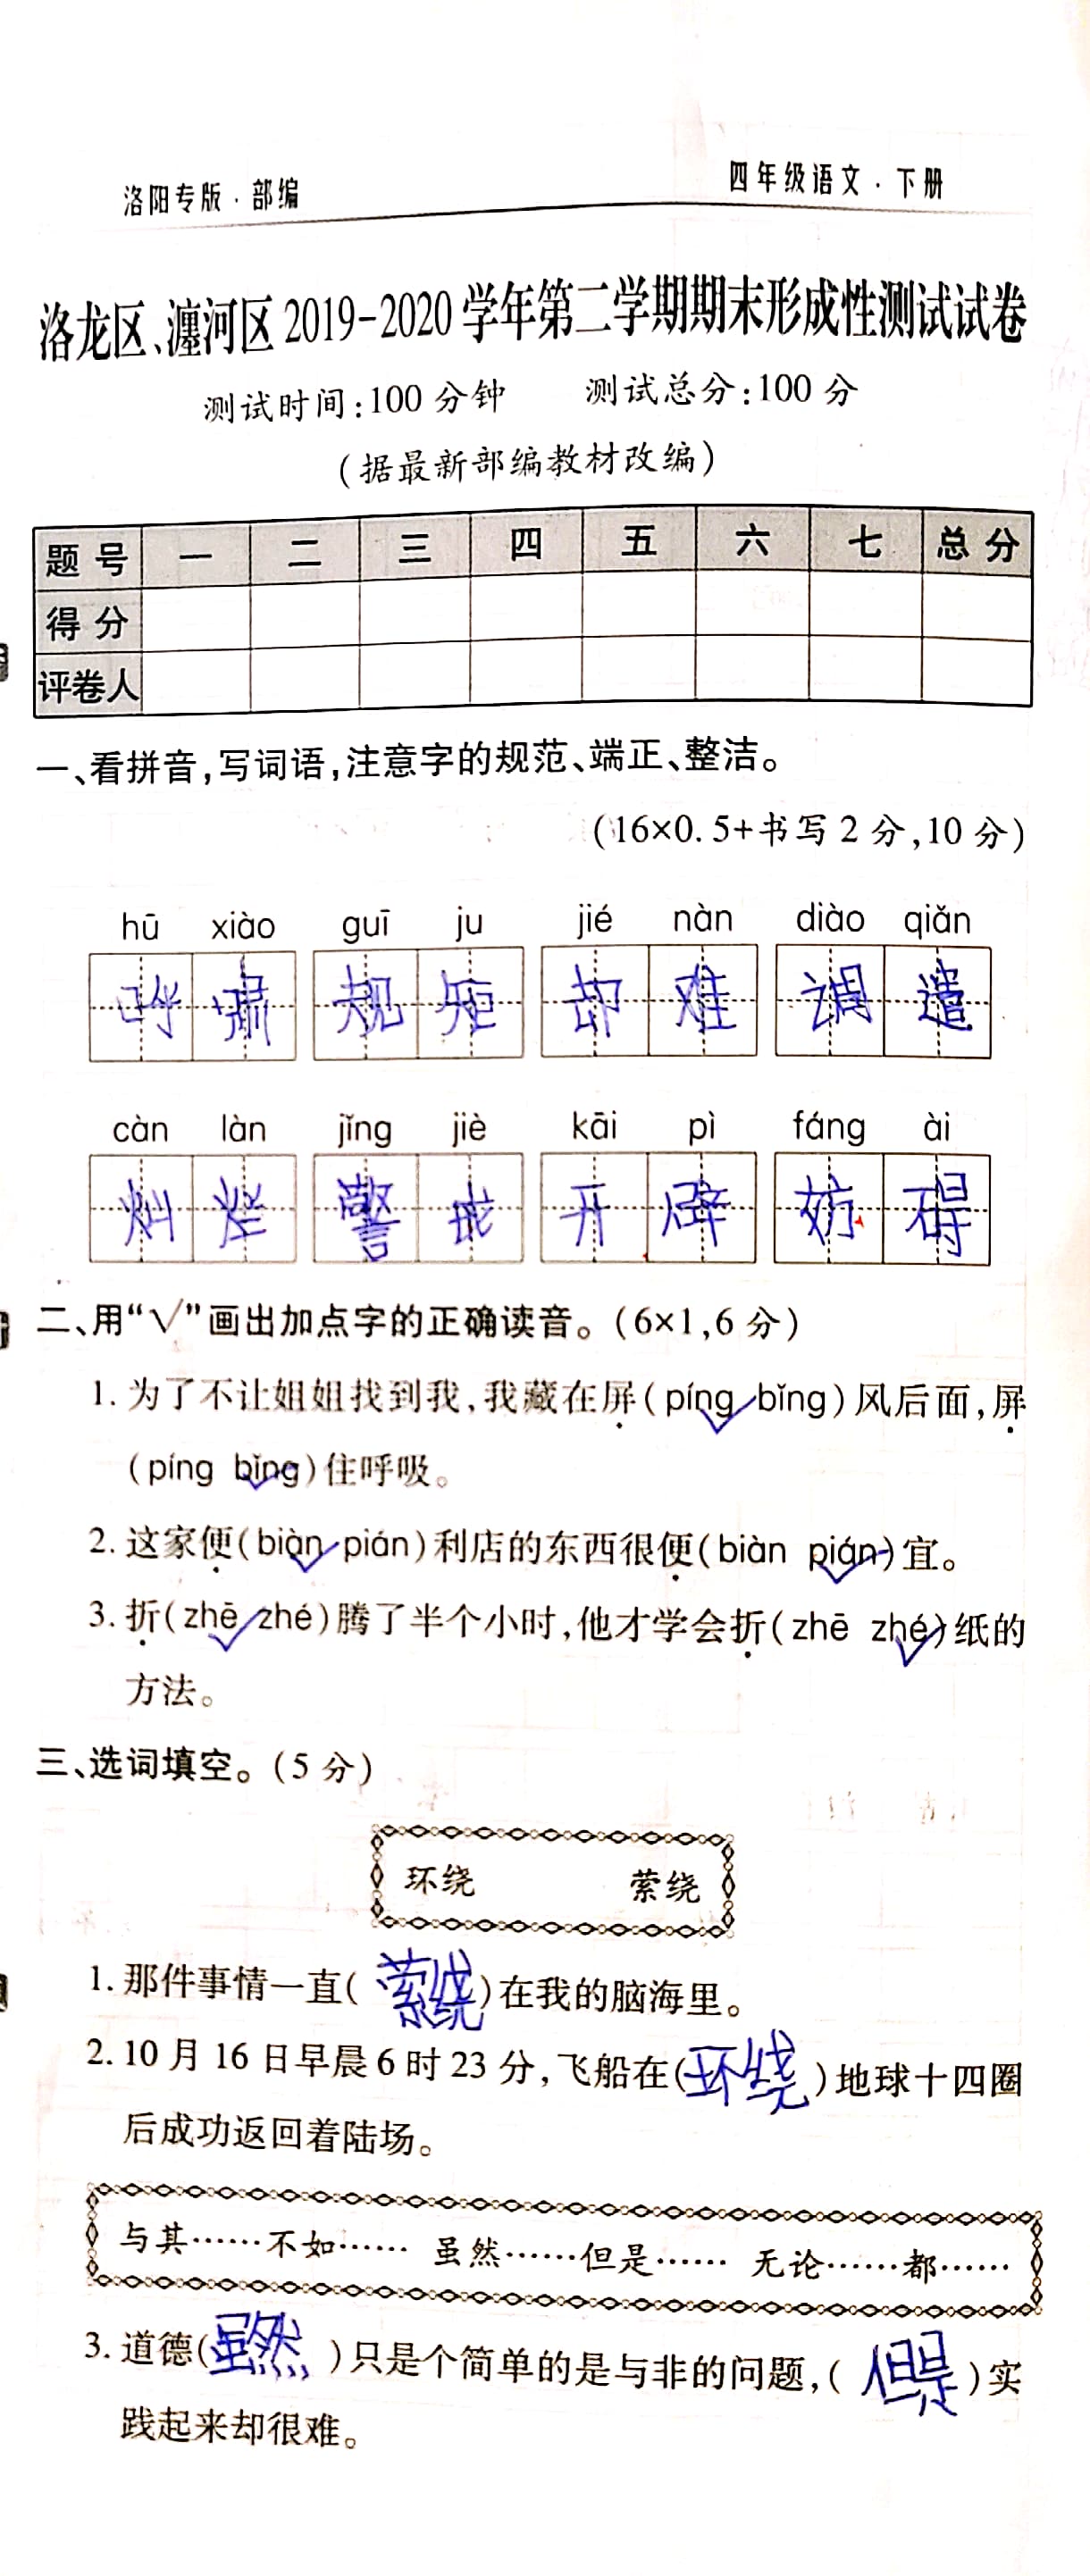 洛阳专版·部编
四年级语文·下册
洛龙区、瀍河区2019-2020学年第二学期期末形成性测试试卷
测试时间:100分钟 测试总分:100分
(据最新部编教材改编)
题号 一 二 三 四 五 六 七 总分
得分
评卷人
一、看拼音,写词语,注意字的规范、端正、整洁。
(16×0.5+书写2分,10分)
hū xiào guī ju jié nàn diào qiǎn
呼啸 规矩 却难 调遣
càn làn jǐng jiè kāi pì fáng ài
灿烂 警戒 开辟 妨碍
二、用“√”画出加点字的正确读音。(6×1,6分)
1.为了不让姐姐找到我,我藏在屏(píng√bǐng)风后面,屏
(píng bǐng√)住呼吸。
2.这家便(biàn√pián)利店的东西很便(biàn pián√)宜。
3.折(zhē√zhé)腾了半个小时,他才学会折(zhē zhé√)纸的
方法。
三、选词填空。(5分)
环绕 萦绕
1.那件事情一直(萦绕)在我的脑海里。
2.10月16日早晨6时23分,飞船在(环绕)地球十四圈
后成功返回着陆场。
与其……不如…… 虽然……但是…… 无论……都……
3.道德(虽然)只是个简单的是与非的问题,(但是)实
践起来却很难。